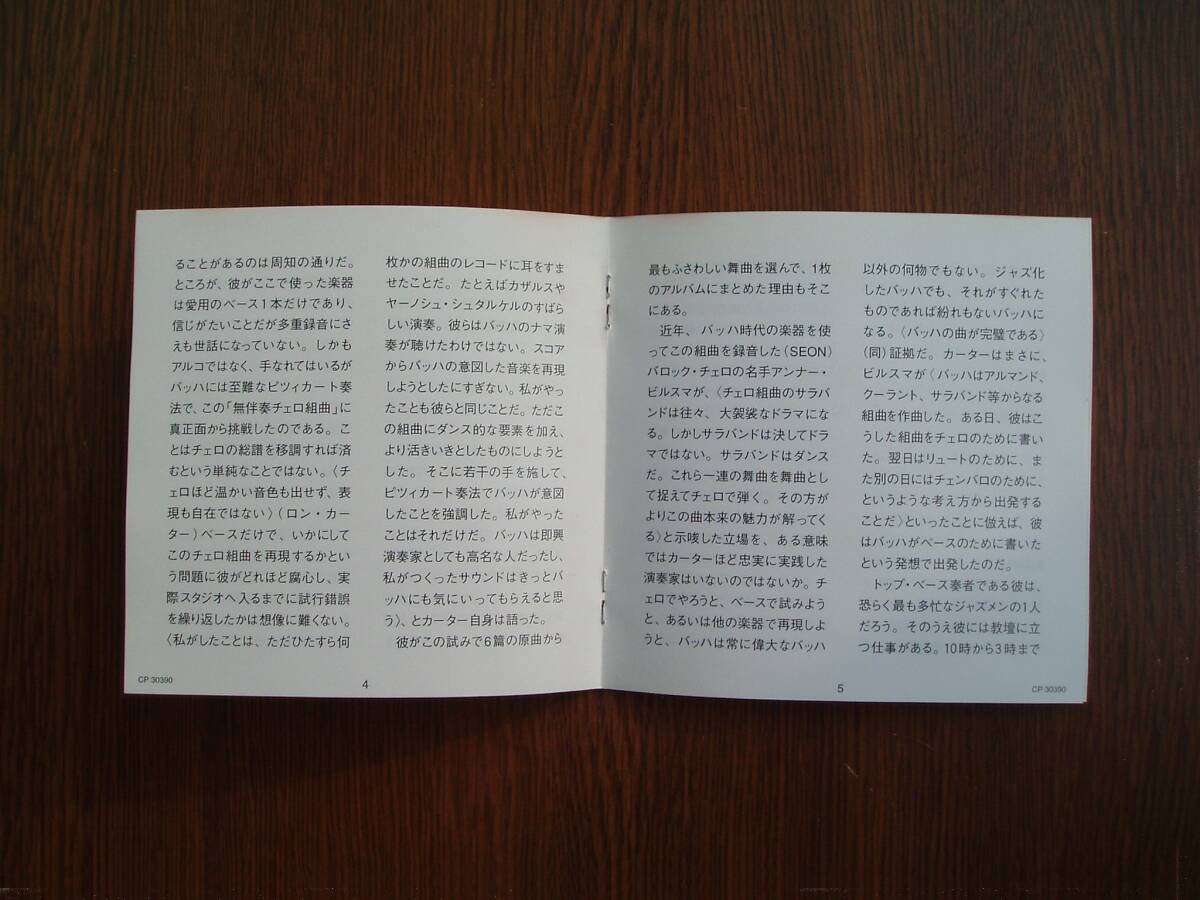 ることがあるのは周知の通りだ。
ところが、彼がここで使った楽器
は愛用のベース1本だけであり、
信じがたいことだが多重録音にさ
えも世話になっていない。しかも
アルコではなく、手なれてはいるが
バッハには至難なピツィカート奏
法で、この「無伴奏チェロ組曲」に
真正面から挑戦したのである。こ
とはチェロの総譜を移調すれば済
むという単純なことではない。〈チ
ェロほど温かい音色も出せず、表
現も自在ではない〉(ロン・カー
ター)ベースだけで、いかにして
このチェロ組曲を再現するかとい
う問題に彼がどれほど腐心し、実
際スタジオへ入るまでに試行錯誤
を繰り返したかは想像に難くない。
〈私がしたことは、ただひたすら何
枚かの組曲のレコードに耳をすま
せたことだ。たとえばカザルスや
ヤーノシュ・シュタルケルのすばら
しい演奏。彼らはバッハのナマ演
奏が聴けたわけではない。スコア
からバッハの意図した音楽を再現
しようとしたにすぎない。私がやっ
たことも彼らと同じことだ。ただこ
の組曲にダンス的な要素を加え、
より活きいきとしたものにしようと
した。そこに若干の手を施して、
ピツィカート奏法でバッハが意図
したことを強調した。私がやった
ことはそれだけだ。バッハは即興
演奏家としても高名な人だったし、
私がつくったサウンドはきっとバ
ッハにも気にいってもらえると思
う〉、とカーター自身は語った。
彼がこの試みで6篇の原曲から
CP 30390
4
最もふさわしい舞曲を選んで、1枚
のアルバムにまとめた理由もそこ
にある。
近年、バッハ時代の楽器を使
ってこの組曲を録音した(SEON)
バロック・チェロの名手アンナー・
ビルスマが、〈チェロ組曲のサラバ
ンドは往々、大袈裟なドラマにな
る。しかしサラバンドは決してドラ
マではない。サラバンドはダンス
だ。これら一連の舞曲を舞曲とし
て捉えてチェロで弾く。その方が
よりこの曲本来の魅力が解ってく
る〉と示唆した立場を、ある意味
ではカーターほど忠実に実践した
演奏家はいないのではないか。チ
ェロでやろうと、ベースで試みよう
と、あるいは他の楽器で再現しよ
うと、バッハは常に偉大なバッハ
以外の何物でもない。ジャズ化
したバッハでも、それがすぐれた
ものであれば紛れもないバッハに
なる。〈バッハの曲が完璧である〉
(同)証拠だ。カーターはまさに、
ビルスマが〈バッハはアルマンド、
クーラント、サラバンド等からなる
組曲を作曲した。ある日、彼はこ
うした組曲をチェロのために書い
た。翌日はリュートのために、ま
た別の日にはチェンバロのために、
というような考え方から出発する
ことだ〉といったことに倣えば、彼
はバッハがベースのために書いた
という発想で出発したのだ。
トップ・ベース奏者である彼は、
恐らく最も多忙なジャズメンの1人
だろう。そのうえ彼には教壇に立
つ仕事がある。10時から3時まで
5
CP 30390